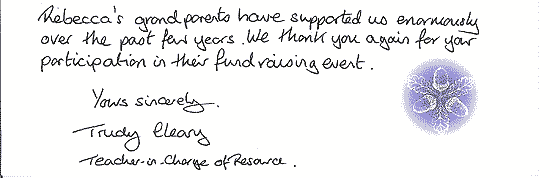 Rebecca's grandparents have supported us enormously
over the past few years. We thank you again for your
participation in their fund raising event.
Yours sincerely.
Trudy Cleary
Teacher-in-Charge of Resource.